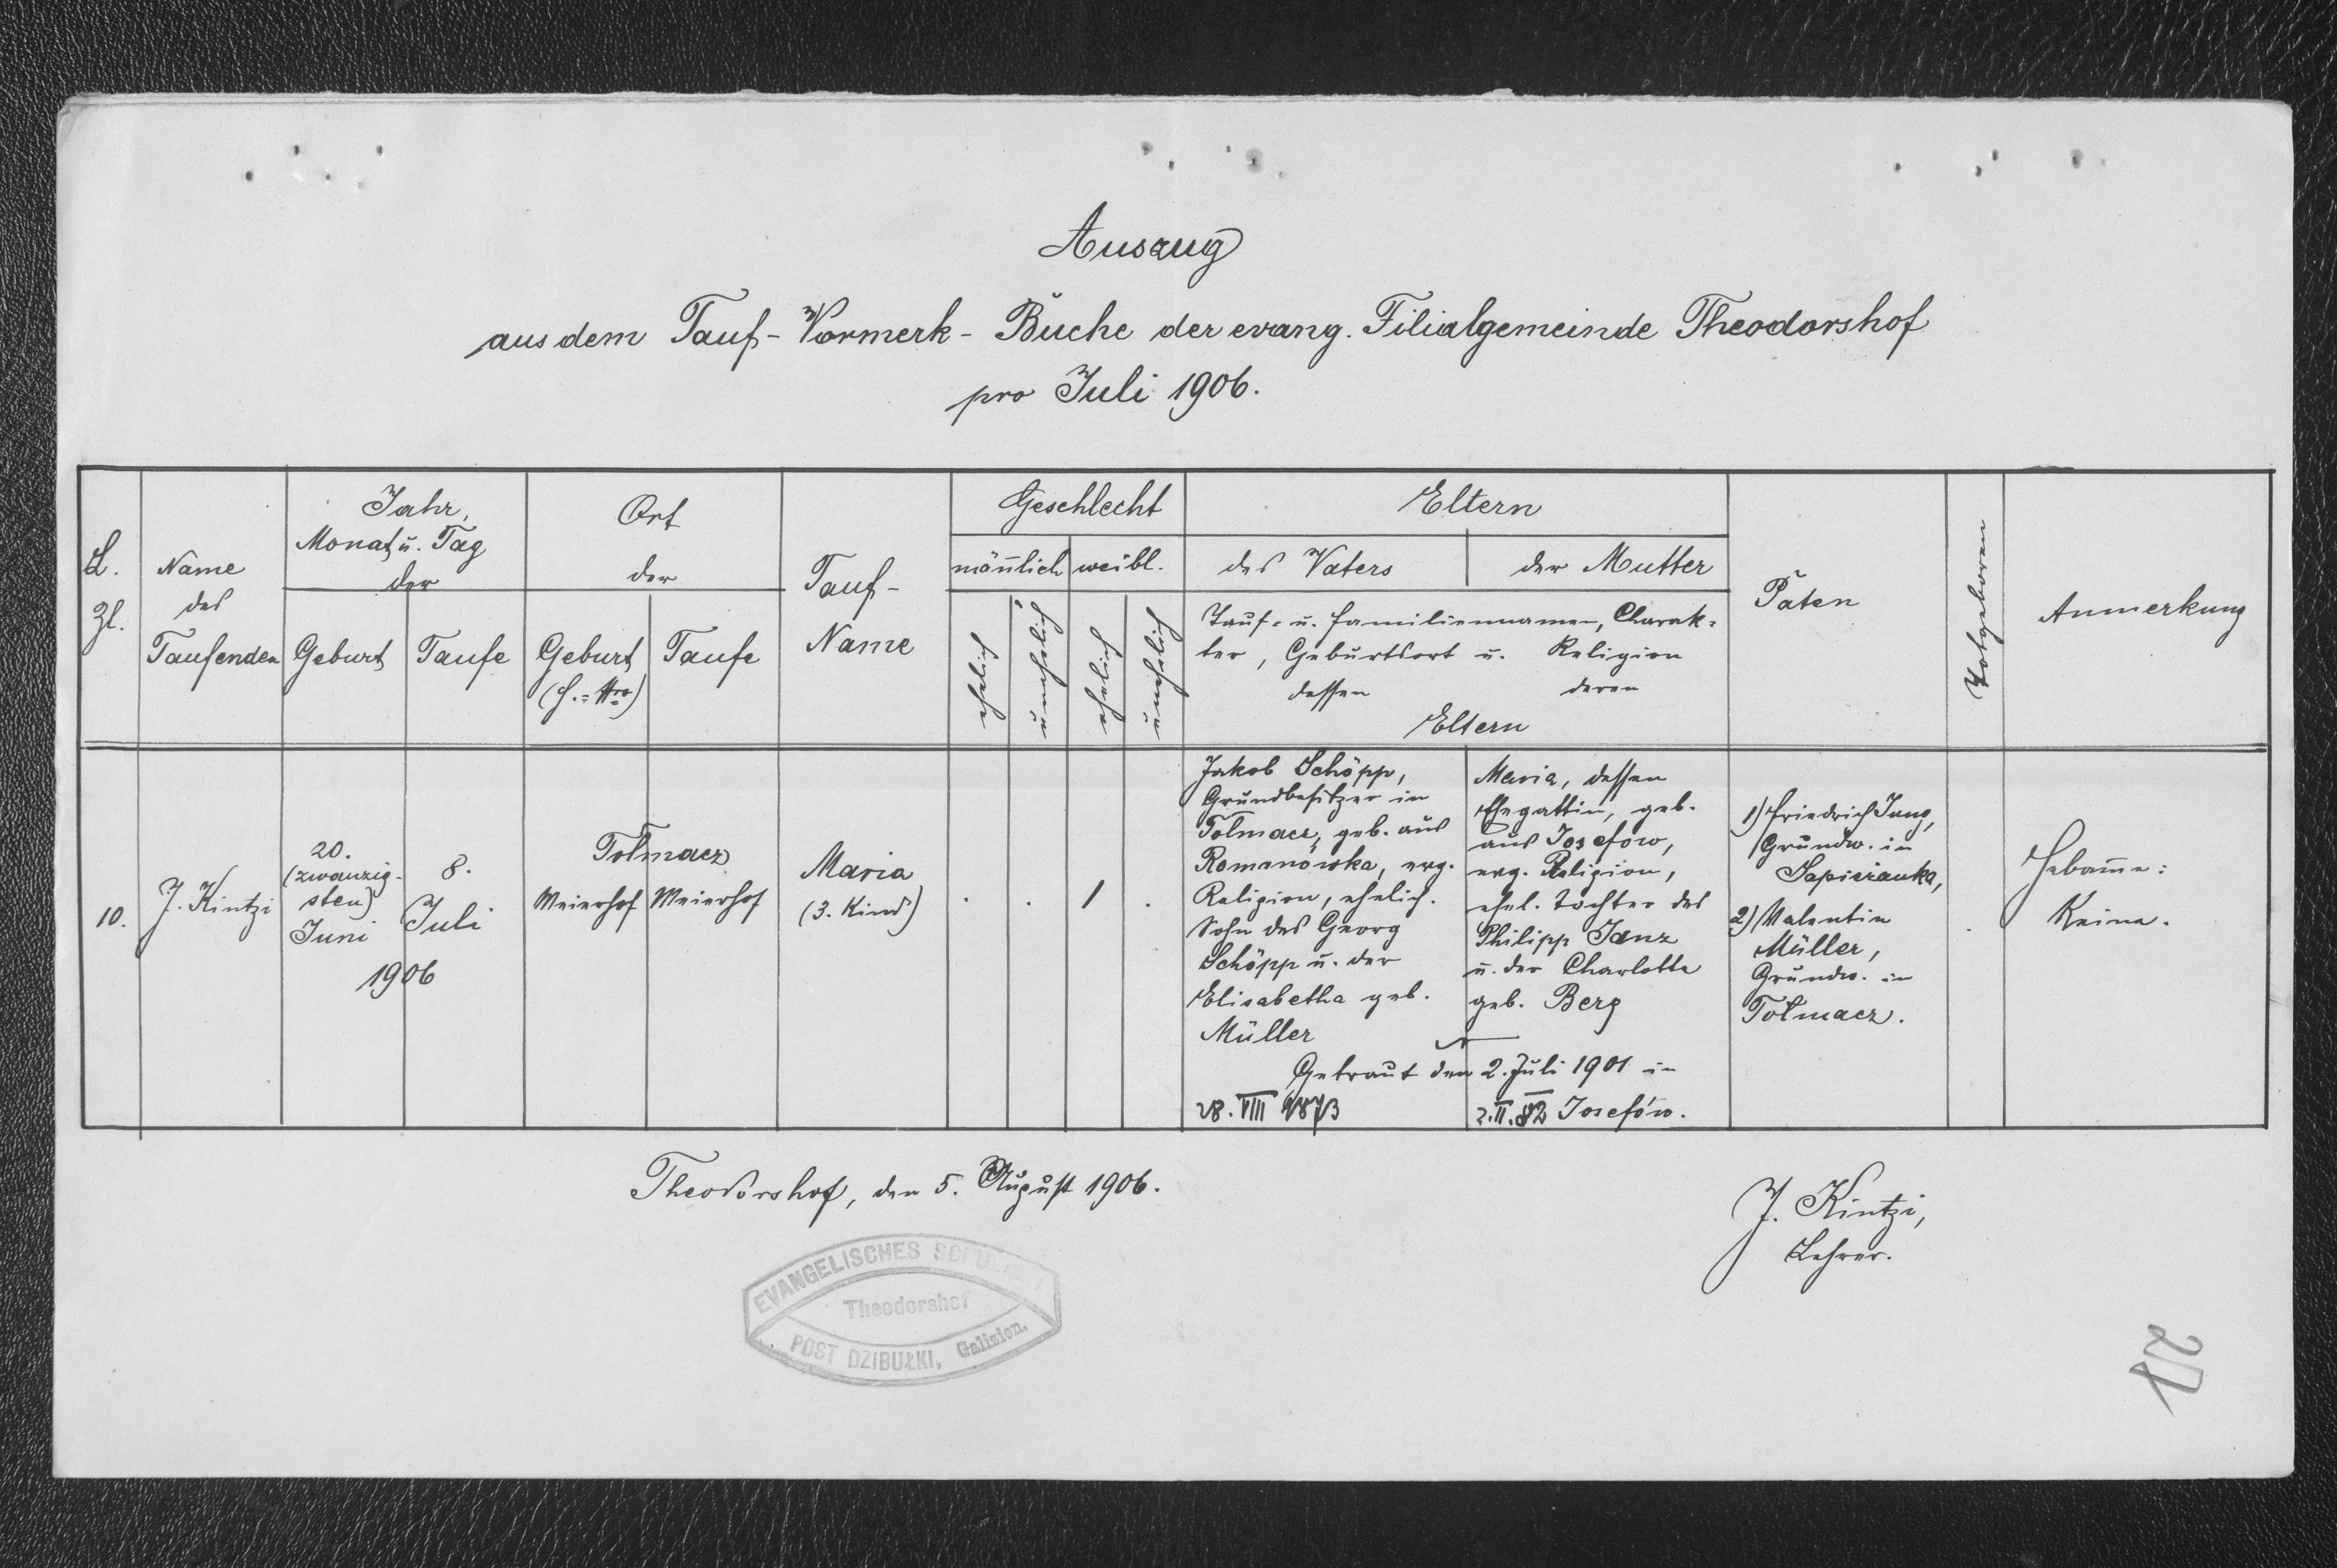 Auszug
aus dem Tauf-Vormerk-Buche der evang. Filialgemeinde Theodorshof
pro Juli 1906.
L.
Zl.
Name
des
Taufenden
Jahr,
Monat u. Tag
der
Geburt
Taufe
Ort
der
Geburt
(H.=Nro)
Taufe
Tauf-
Name
Geschlecht
männlich
weibl.
ehelich
unehelich
ehelich
unehelich
Eltern
des Vaters
der Mutter
Tauf- u. Familiennamen, Charak-
ter, Geburtsort u. Religion
dessen
deren
Eltern
Paten
Totgeboren
Anmerkung
10.
J. Kintzi
20.
(zwanzig-
sten)
Juni
8.
Juli
1906
Tołmacz
Meierhof
Meierhof
Maria
(3. Kind)
1
Jakob Schöpp,
Grundbesitzer in
Tołmacz, geb. aus
Romanówka, evg.
Religion, ehelich.
Sohn des Georg
Schöpp u. der
Elisabetha geb.
Müller
Maria, dessen
Ehegattin, geb.
aus Josefow,
evg. Religion,
ehel. Tochter des
Philipp Janz
u. der Charlotte
geb. Berg
Getraut den 2. Juli 1901 in
28. VIII 1873
2. II. 82 Josefów.
1) Friedrich Jung,
Grundw. in
Sapieżanka,
2) Valentin
Müller,
Grundw. in
Tołmacz.
Hebamme:
Keine.
Theodorshof, den 5. August 1906.
J. Kintzi,
Lehrer.
EVANGELISCHES
Theodorshof
POST DZIBUŁKI, Galizien.